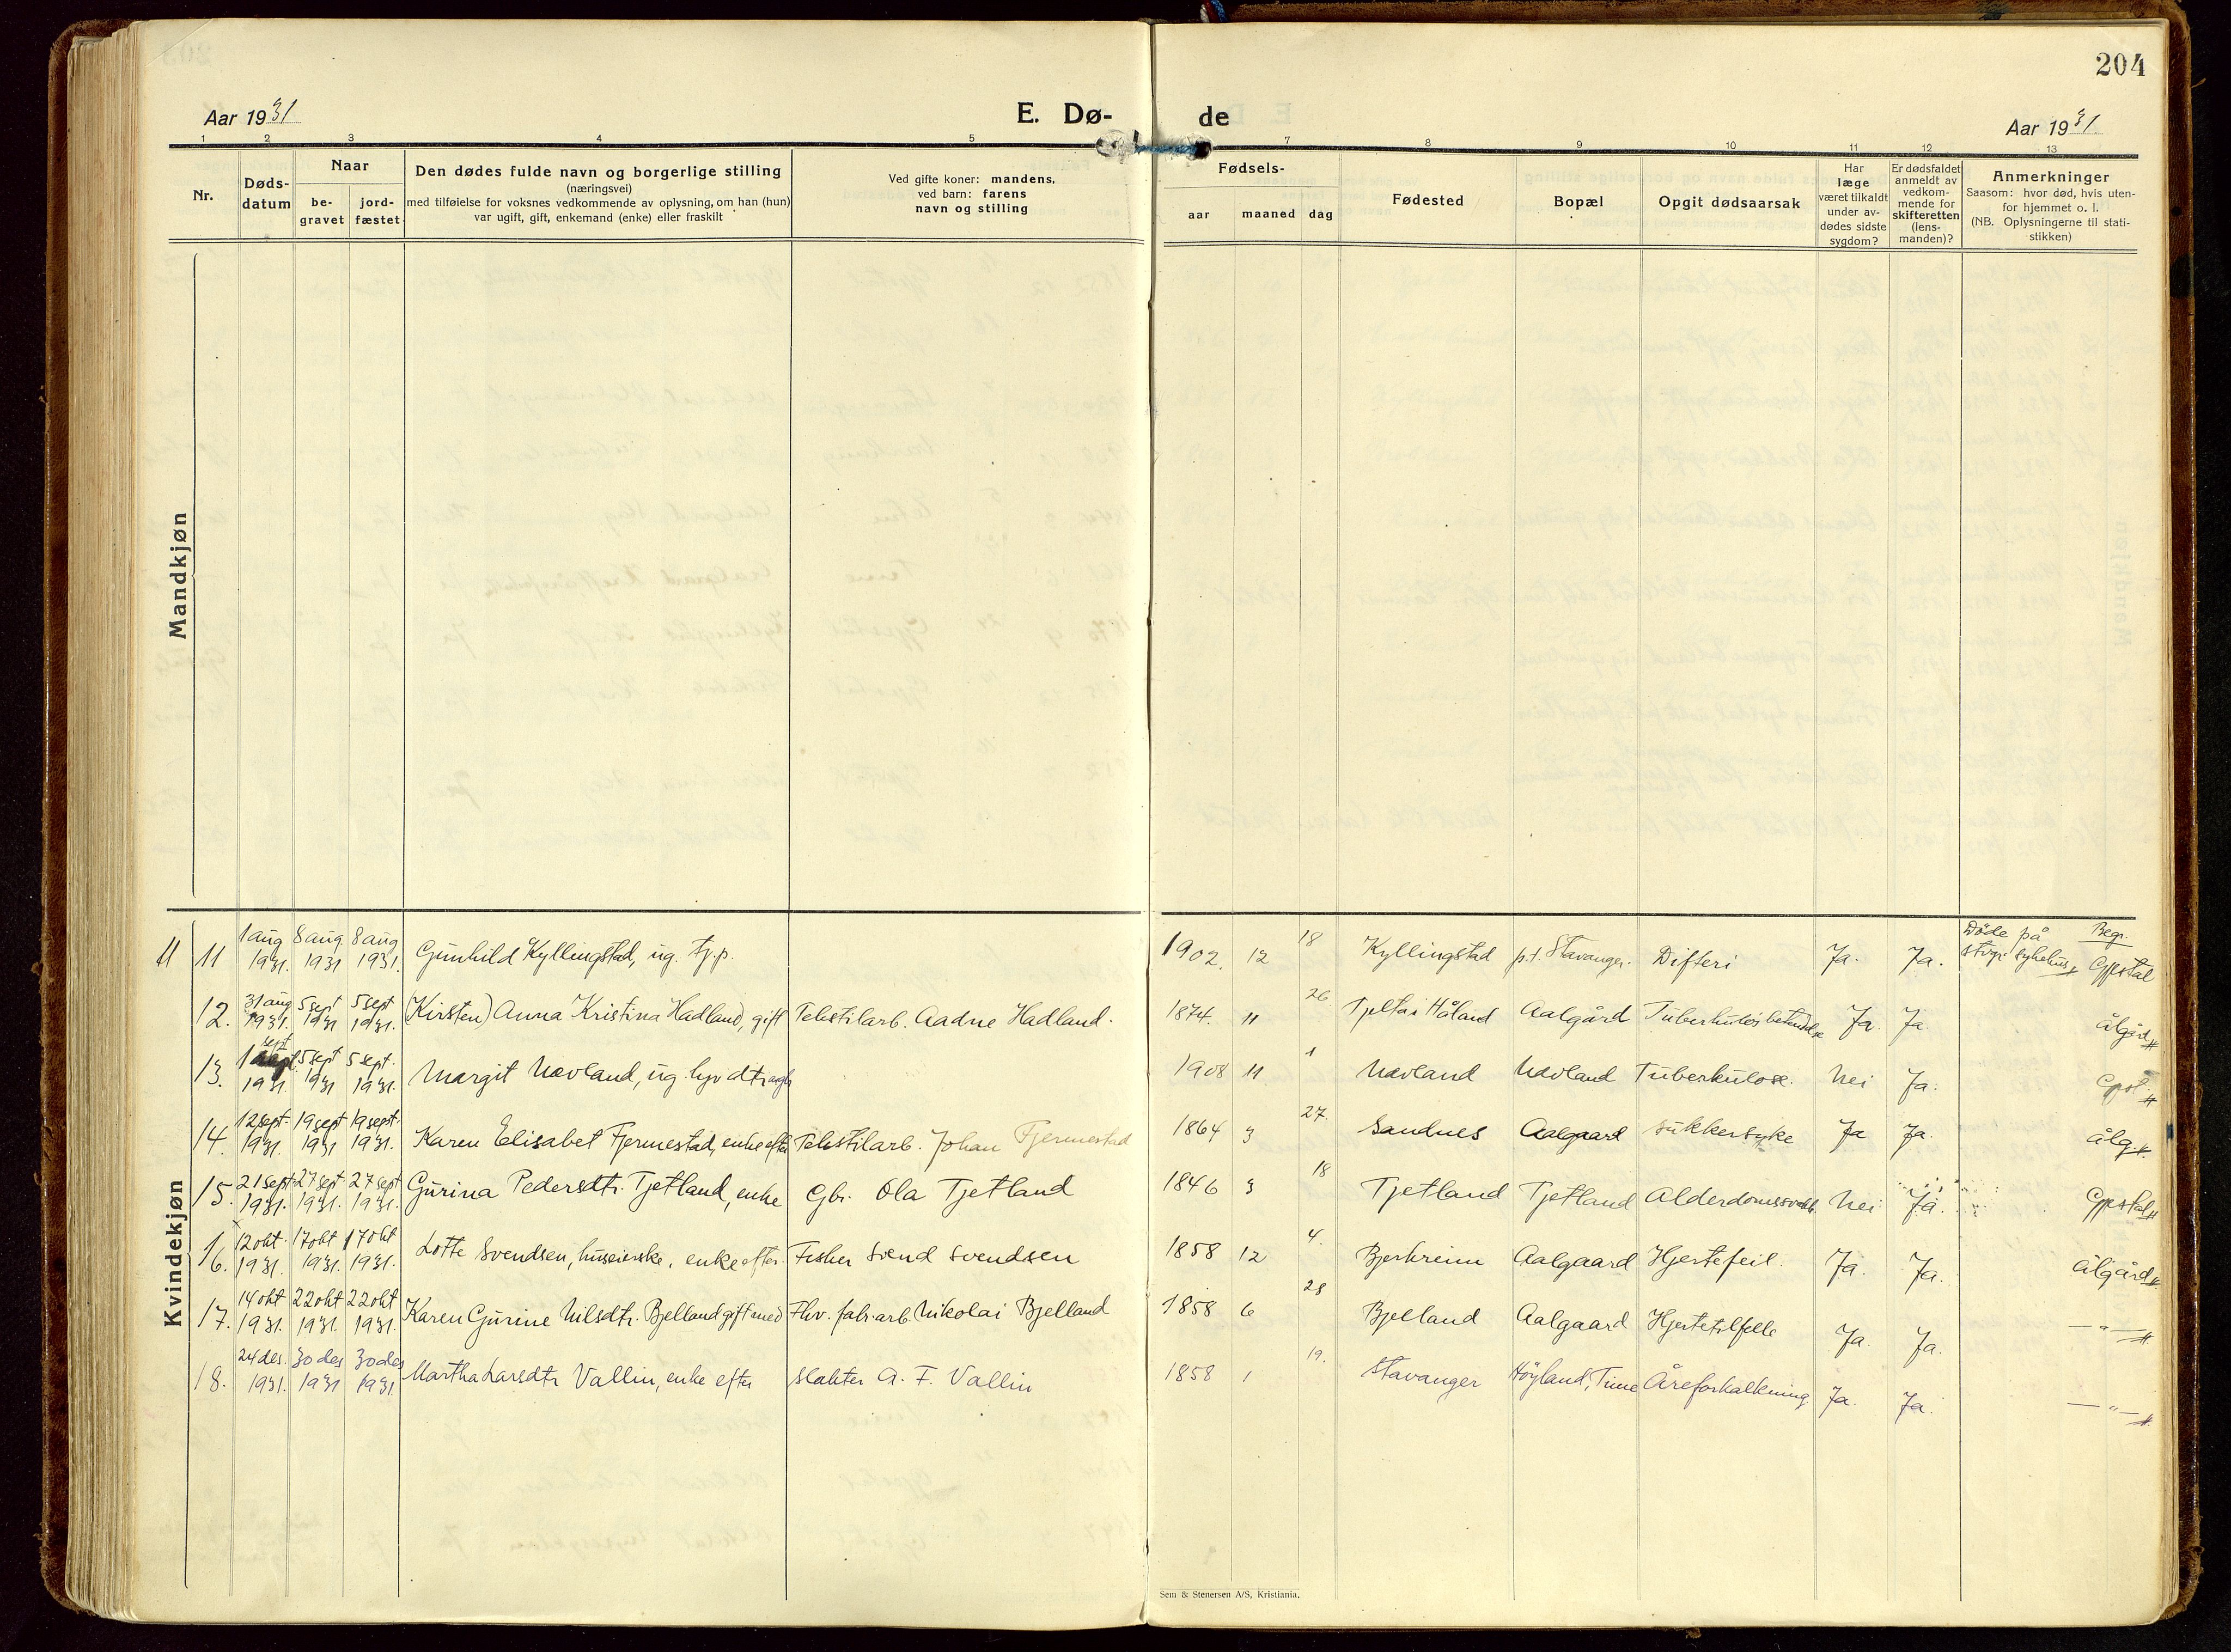 204
Aar 1931
E. Dø-
de
Aar 1931.
1 2 3 4 5 7 8 9 10 11 12 13
Nr.
Døds-
datum
Naar
be-
gravet
jord-
fæstet
Den dødes fulde navn og borgerlige stilling
(næringsvei)
med tilføielse for voksnes vedkommende av oplysning, om han (hun)
var ugift, gift, enkemand (enke) eller fraskilt
Ved gifte koner: mandens,
ved barn: farens
navn og stilling
Fødsels-
aar maaned dag
Fødested
Bopæl
Opgit dødsaarsak
Har
læge
været tilkaldt
under av-
dødes sidste
sygdom?
Er dødsfaldet
anmeldt av
vedkom-
mende for
skifteretten
(lens-
manden)?
Anmerkninger
Saasom: hvor død, hvis uten-
for hjemmet o. l.
(NB. Oplysningerne til stati-
stikken)
Mandkjøn
Kvindekjøn
11 11 1 aug 1931. 8 aug. 1931 8 aug 1931. Gunhild Kyllingstad, ug. tj.p. 1902. 12 18 Kyllingstad p.t. Stavanger. Difteri Ja. Ja. Døde på sykehus Begr. Gjestal
12. 31 aug 1931. 5 sept 1931 5 sept 1931. (Kirsten) Anna Kristina Hadland, gift Tekstilarb. Aadne Hadland. 1874. 11 26 Tjelta i Håland Aalgård Ja. Ja. Ålgård
13. 1 sept 1931. 5 sept 1931 5 sept. 1931. Margit Nævland, ug. 1908 11 1 Nævland Nævland Tuberkulose. Nei Ja.
14. 12 sept. 1931. 19 sept 1931 19 sept. 1931. Karen Elisabet Fjermestad, enke efter Tekstilarb. Johan Fjermestad 1864 3 27. Sandnes Aalgaard Sukkersyke Ja Ja. Ålg.
15. 21 sept 1931. 27 sept 1931. 27 sept 1931. Gurina Pedersdtr. Tjetland, enke Gbr. Ola Tjetland 1846 3 18 Tjetland Tjetland Nei Ja. Gjestal
16. 12 okt. 1931. 17 okt 1931. 17 okt 1931. Lotte Svendsen, huseierske, enke efter Fisker Svend Svendsen 1858 12 4. Bjerkreim Aalgaard Hjertefeil. Ja. Ja. Ålgård
17. 14 okt 1931. 22 okt 1931. 22 okt 1931. Karen Gurine Nilsdtr. Bjelland gift med Fhv. fabr. arb. Nikolai Bjelland 1858 6 28 Bjelland Aalgaard Hjertetilfelle Ja. Ja. — " —
18. 24 des. 1931. 30 des 1931 30 des 1931 Martha Larsdtr Vallin, enke efter slakter A. F. Vallin 1858 1 19. Stavanger Høyland, Time Åreforkalkning Ja. Ja. — " —
Sem & Stenersen A/S, Kristiania.